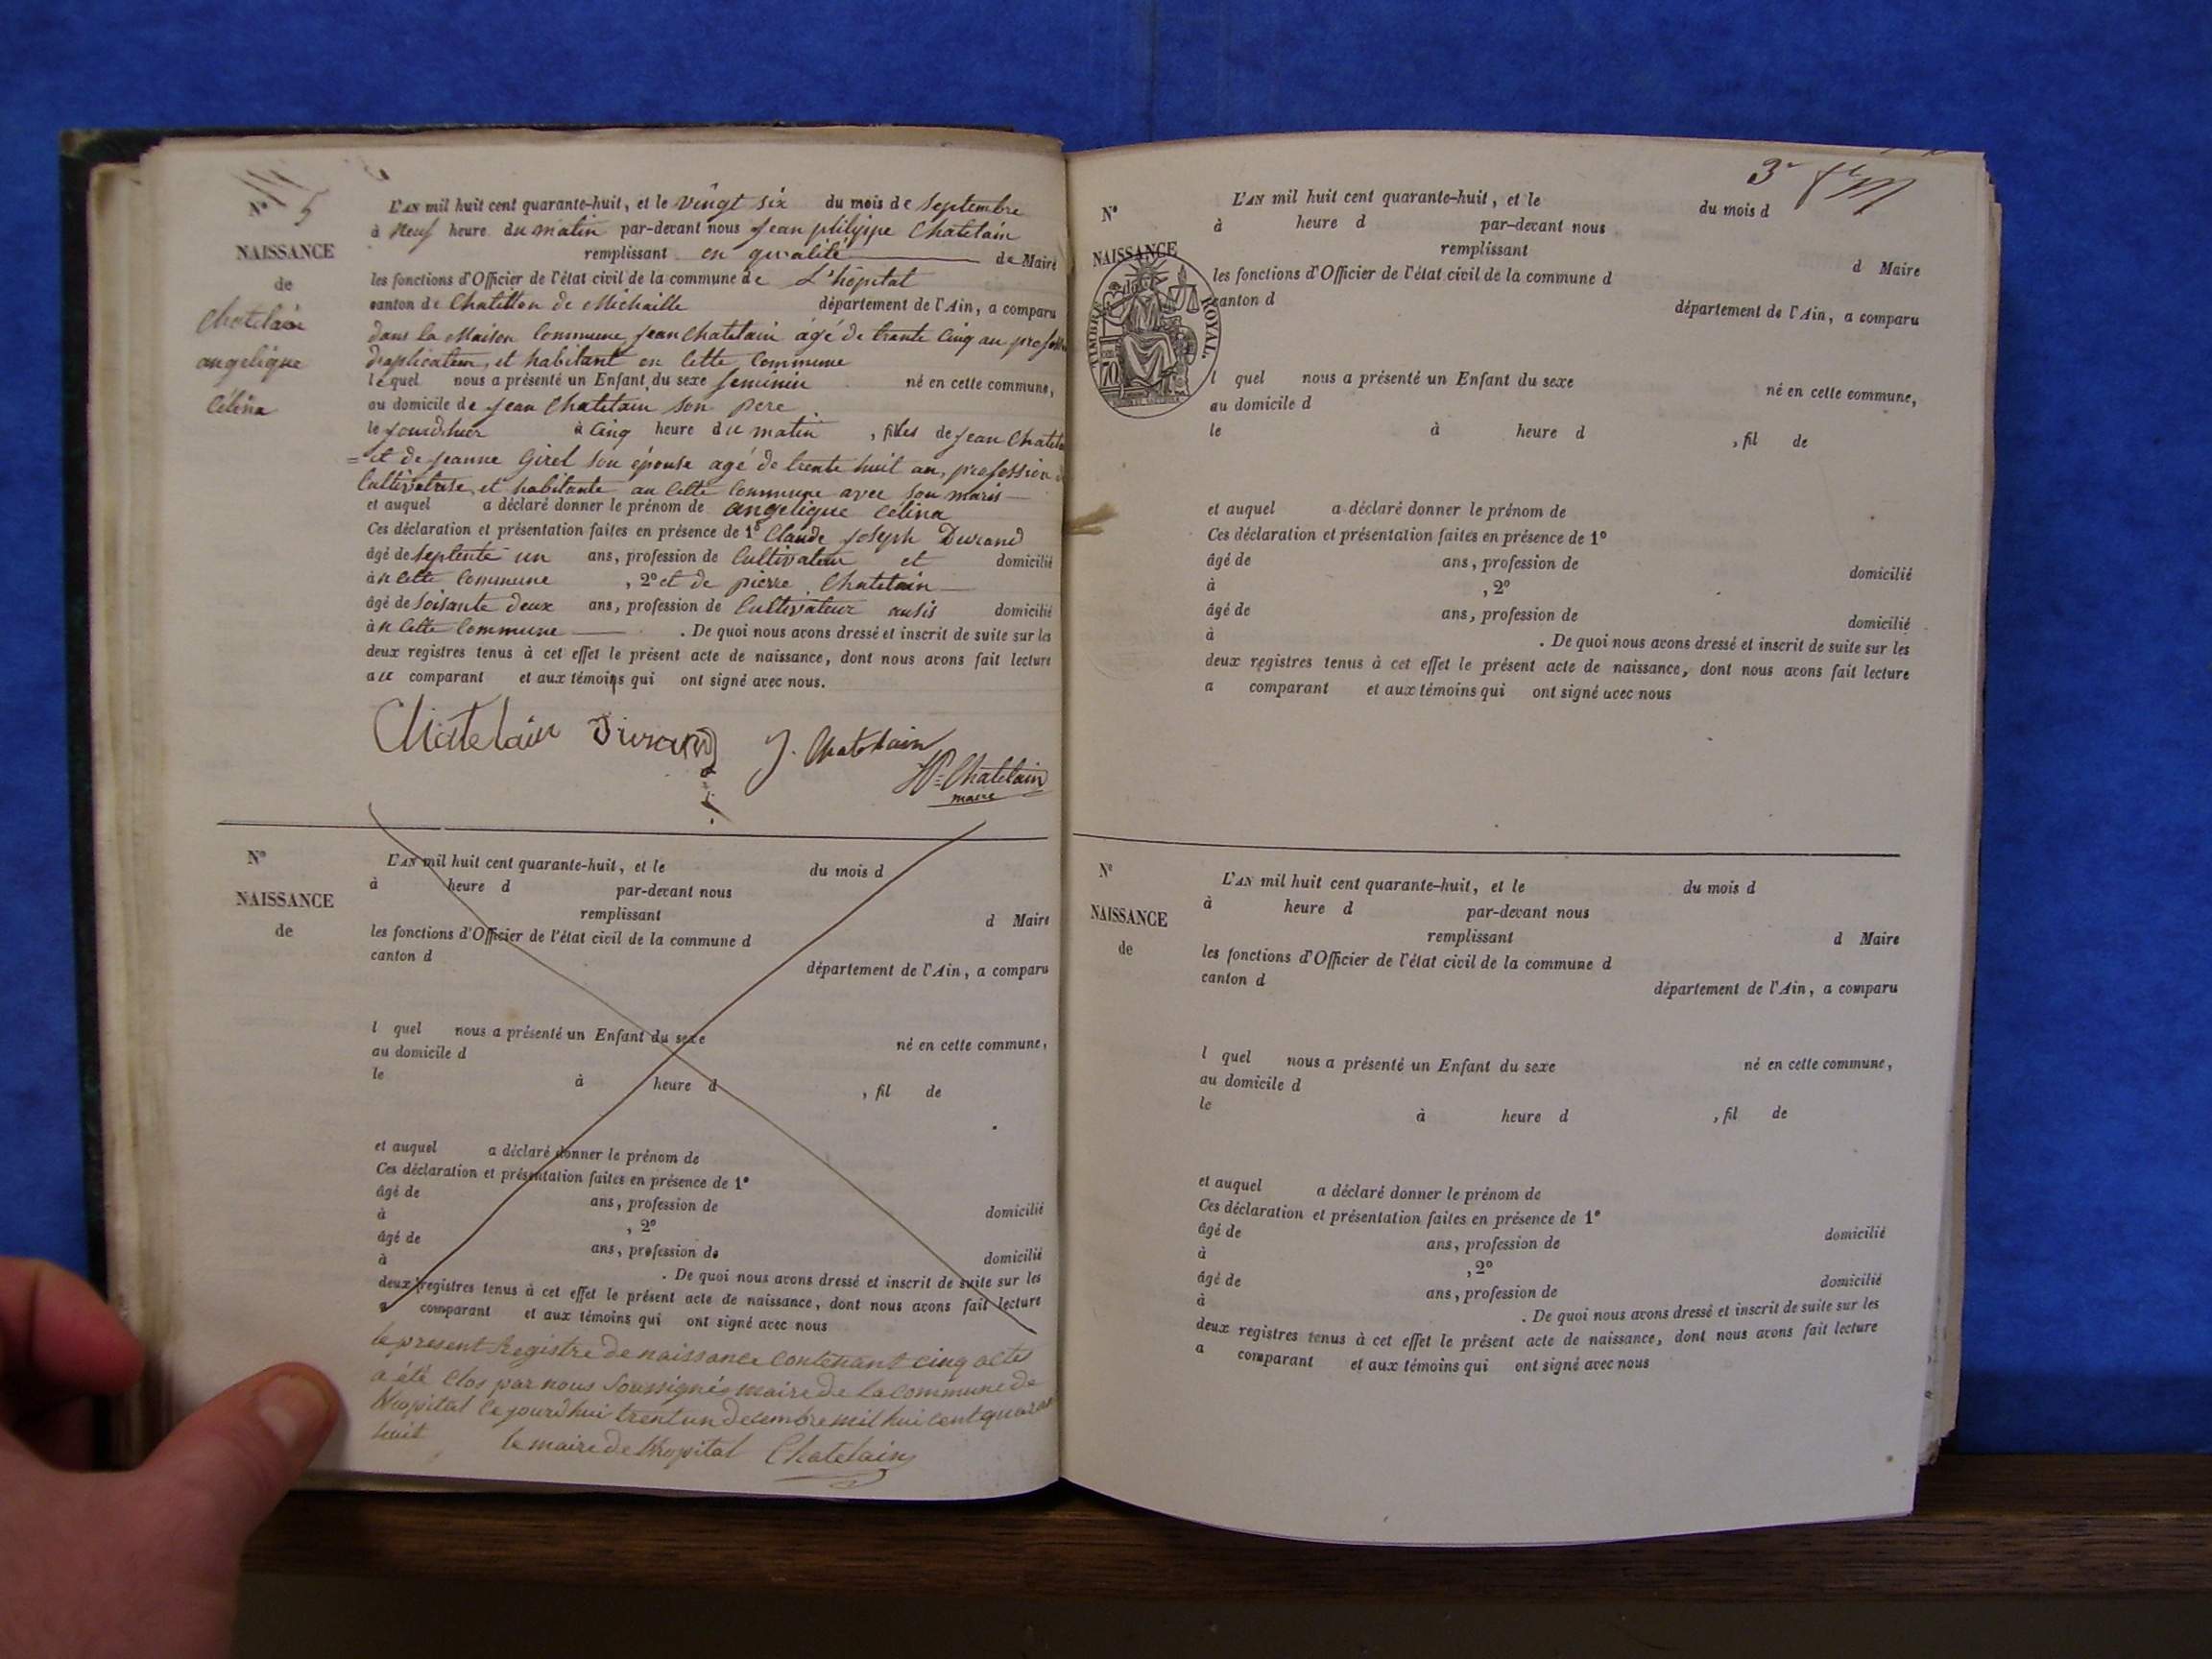 N° 5
NAISSANCE
de
Chatelain
angelique
Célina
L'AN mil huit cent quarante-huit, et le vingt six du mois de Septembre
à Neuf heure du matin par-devant nous Jean philippe Chatelain
remplissant en qualité de Maire
les fonctions d'Officier de l'état civil de la commune de L'hôpital
canton de Chatillon de Michaille département de l'Ain, a comparu
dans la Maison Commune Jean Chatelain agé de trante cinq an
et habitant en cette Commune
lequel nous a présenté un Enfant du sexe feminin né en cette commune,
au domicile de Jean Chatelain son pere
le à cinq heure du matin, filles de Jean
et de Jeanne Girel son épouse agé de trente huit an, profession
et habitante au cette Commune avec son maris
et auquel a déclaré donner le prénom de angelique Célina
Ces déclaration et présentation faites en présence de 1° Claude Joseph Durand
âgé de septente un ans, profession de Cultivateur et domicilié
à cette Commune, 2° et de pierre Chatelain
âgé de soisante deux ans, profession de Cultivateur ausis domicilié
à cette Commune . De quoi nous avons dressé et inscrit de suite sur les
deux registres tenus à cet effet le présent acte de naissance, dont nous avons fait lecture
au comparant et aux témoins qui ont signé avec nous.
Chatelain Durand J. Chatelain
Chatelain
maire
N°
NAISSANCE
de
L'AN mil huit cent quarante-huit, et le du mois d
à heure d par-devant nous
remplissant d Maire
les fonctions d'Officier de l'état civil de la commune d
canton d département de l'Ain, a comparu
l quel nous a présenté un Enfant du sexe né en cette commune,
au domicile d
le à heure d , fil de
et auquel a déclaré donner le prénom de
Ces déclaration et présentation faites en présence de 1°
âgé de ans, profession de domicilié
à , 2°
âgé de ans, profession de domicilié
à . De quoi nous avons dressé et inscrit de suite sur les
deux registres tenus à cet effet le présent acte de naissance, dont nous avons fait lecture
a comparant et aux témoins qui ont signé avec nous
le present Registre de naissance contenant cinq actes
a été Clos par nous Soussignés maire de la commune de
lhopital le jourdhui trent un decembre mil hui cent
huit le maire de lhopital Chatelain
3
N°
NAISSANCE
de
TIMBRE ROYAL.
70
L'AN mil huit cent quarante-huit, et le du mois d
à heure d par-devant nous
remplissant d Maire
les fonctions d'Officier de l'état civil de la commune d
canton d département de l'Ain, a comparu
l quel nous a présenté un Enfant du sexe né en cette commune,
au domicile d
le à heure d , fil de
et auquel a déclaré donner le prénom de
Ces déclaration et présentation faites en présence de 1°
âgé de ans, profession de domicilié
à , 2°
âgé de ans, profession de domicilié
à . De quoi nous avons dressé et inscrit de suite sur les
deux registres tenus à cet effet le présent acte de naissance, dont nous avons fait lecture
a comparant et aux témoins qui ont signé avec nous
N°
NAISSANCE
de
L'AN mil huit cent quarante-huit, et le du mois d
à heure d par-devant nous
remplissant d Maire
les fonctions d'Officier de l'état civil de la commune d
canton d département de l'Ain, a comparu
l quel nous a présenté un Enfant du sexe né en cette commune,
au domicile d
le à heure d , fil de
et auquel a déclaré donner le prénom de
Ces déclaration et présentation faites en présence de 1°
âgé de ans, profession de domicilié
à , 2°
âgé de ans, profession de domicilié
à . De quoi nous avons dressé et inscrit de suite sur les
deux registres tenus à cet effet le présent acte de naissance, dont nous avons fait lecture
a comparant et aux témoins qui ont signé avec nous